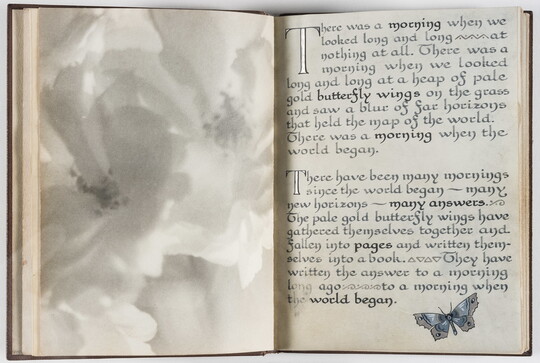 There was a morning when we
looked long and long at
nothing at all. There was a
morning when we looked
long and long at a heap of pale
gold butterfly wings on the grass
and saw a blur of far horizons
that held the map of the world.
There was a morning when the
world began.
There have been many mornings
since the world began — many
new horizons — many answers.
The pale gold butterfly wings have
gathered themselves together and
fallen into pages and written them-
selves into a book. They have
written the answer to a morning
long ago to a morning when
the world began.